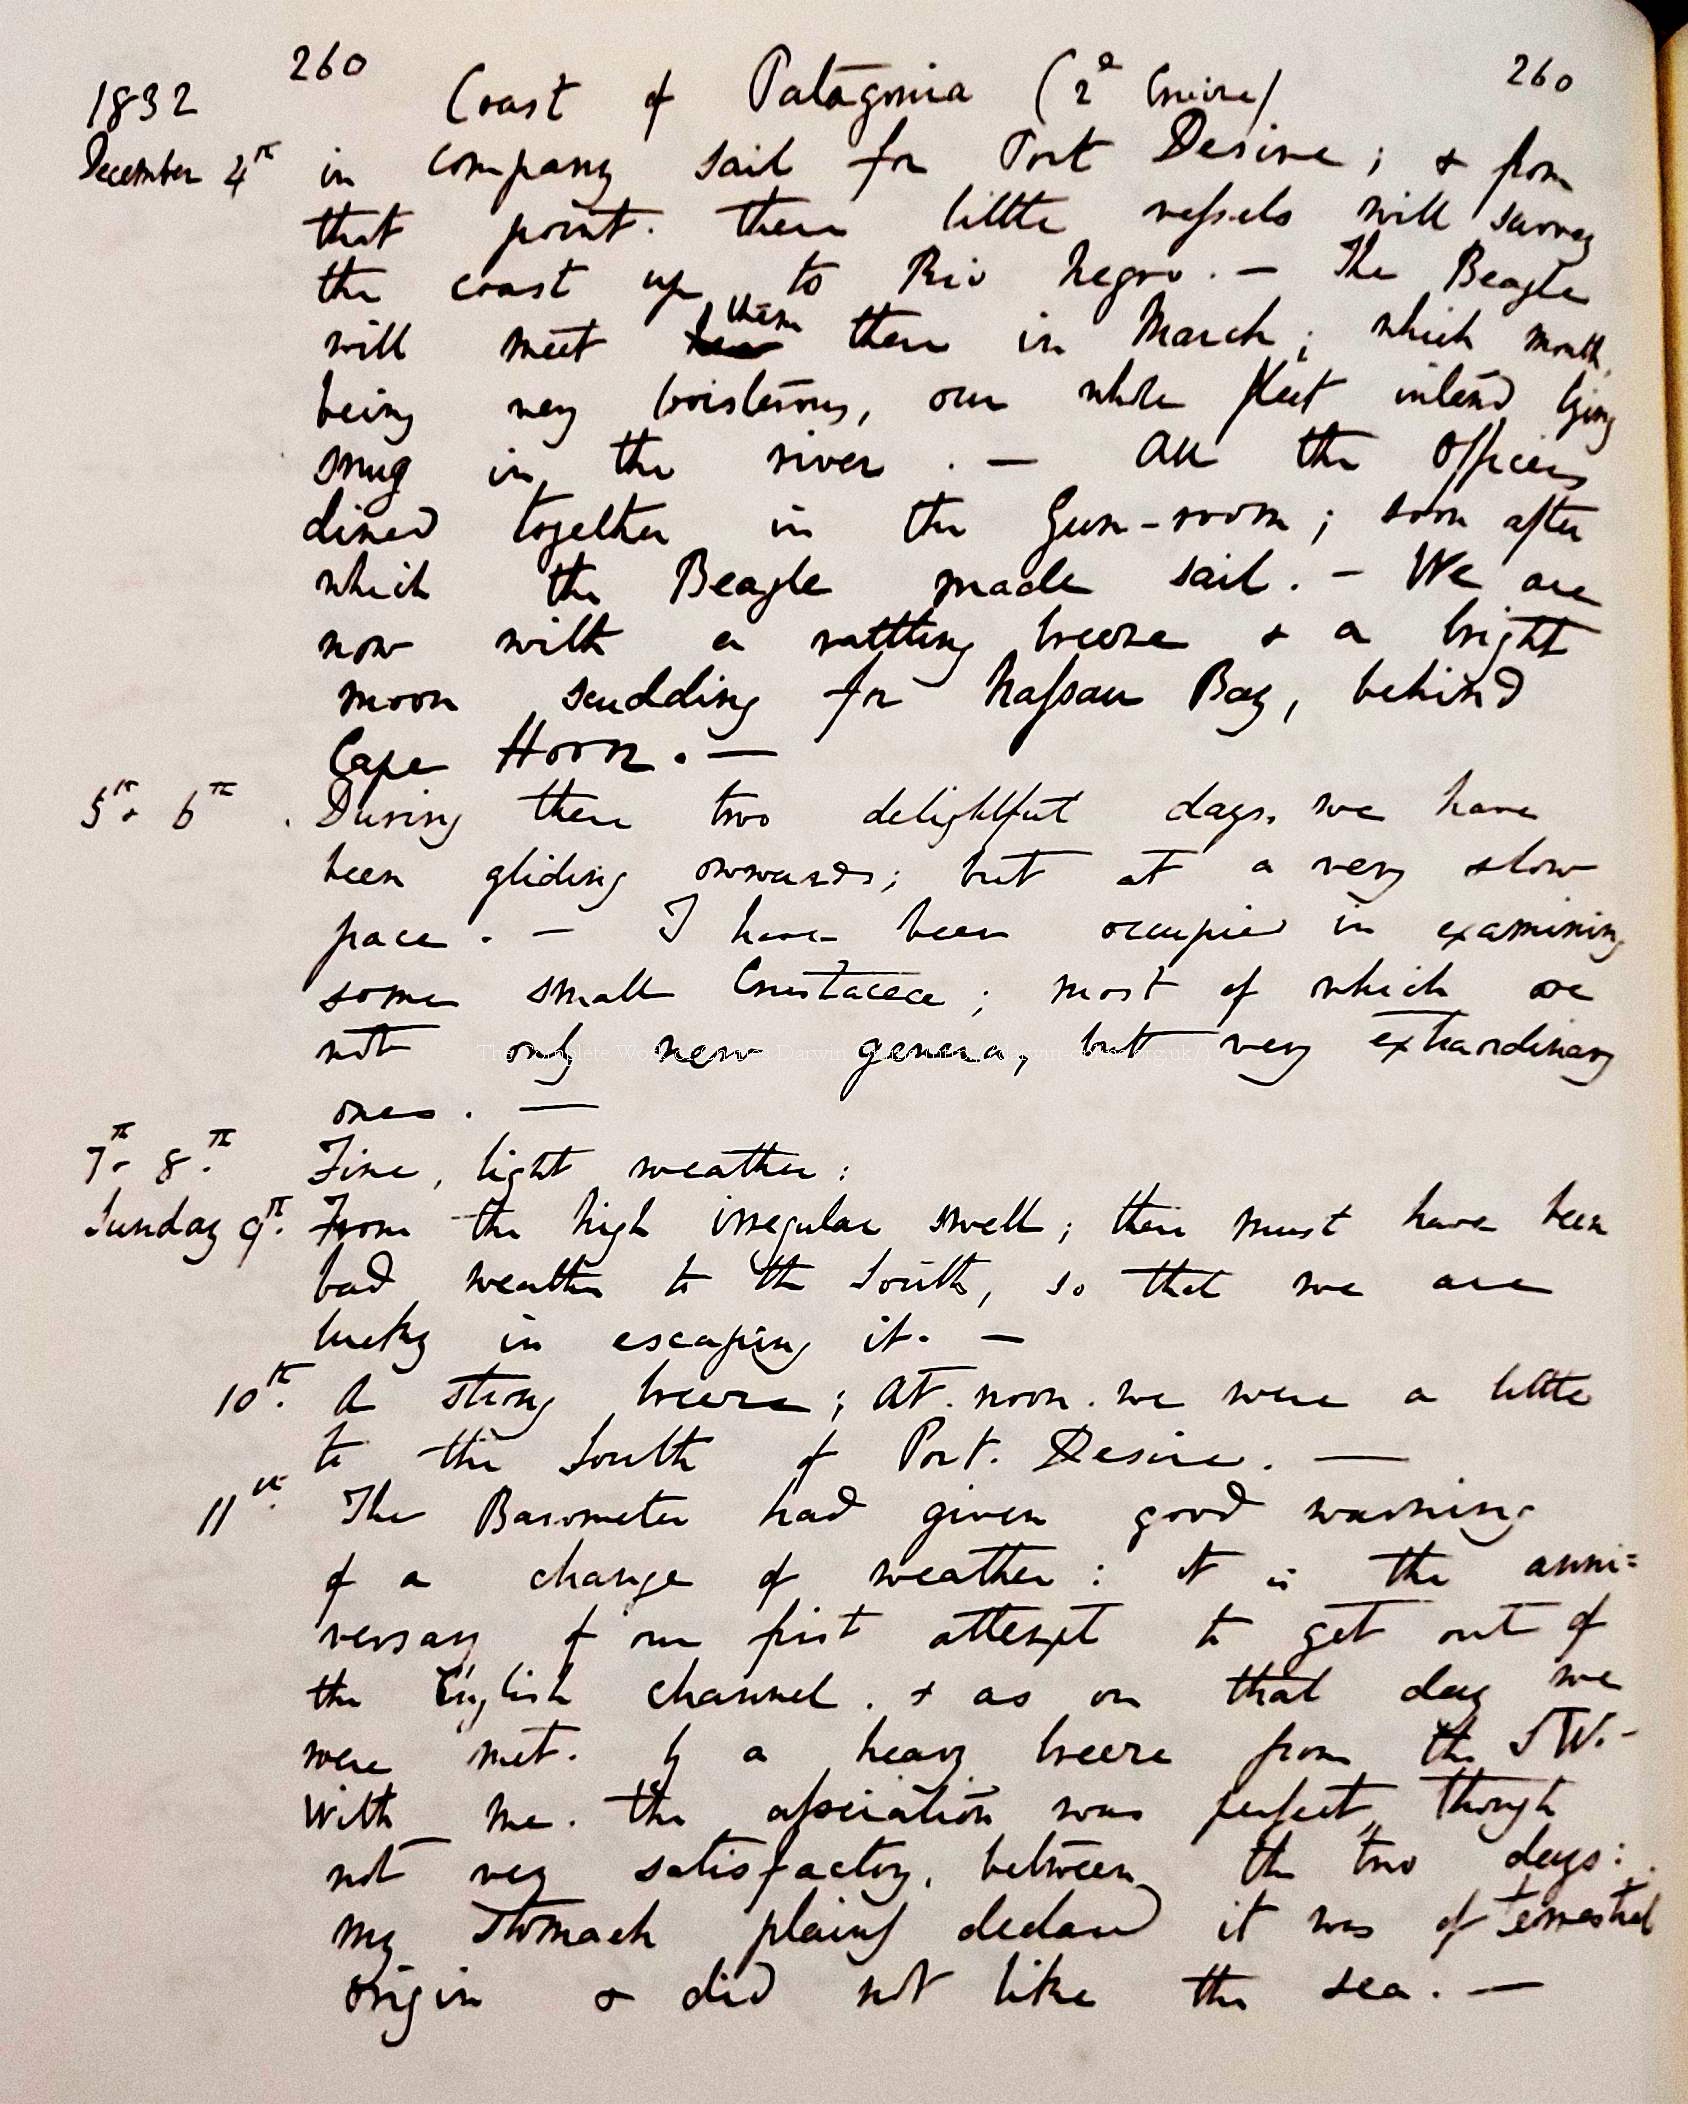 260 260
1832 Coast of Patagonia (2d Cruize)
December 4th in company sail for Port Desire; & from
that point. these little vessels will survey
the coast up to Rio Negro. — The Beagle
will meet them there in March; which month
being very boisterous, our whole fleet intend lying
snug in the river. — All the Officers
dined together in the Gun-room; soon after
which the Beagle made sail. — We are
now with a rattling breeze & a bright
moon scudding for Nassau Bay, behind
Cape Horn. —
5th & 6th. During these two delightful days. we have
been gliding onwards; but at a very slow
pace. — I have been occupied in examining
some small Crustaceæ; most of which are
not only new genera, but very extraordinary
ones. —
7th & 8.th Fine, light weather:
Sunday 9th. From the high irregular swell; there must have been
bad weather to the South, so that we are
lucky in escaping it. —
10th. A strong breeze; at. noon. we were a little
to the South of Port. Desire. —
11th. The Barometer had given good warning
of a change of weather: it is the anni=
versary of our first attempt to get out of
the English channel. & as on that day we
were met. by a heavy breeze from the SW. —
With me. the association was perfect, though
not very satisfactory, between the two days:
my stomach plainly declared it was of terrestrial
origin & did not like the sea. —